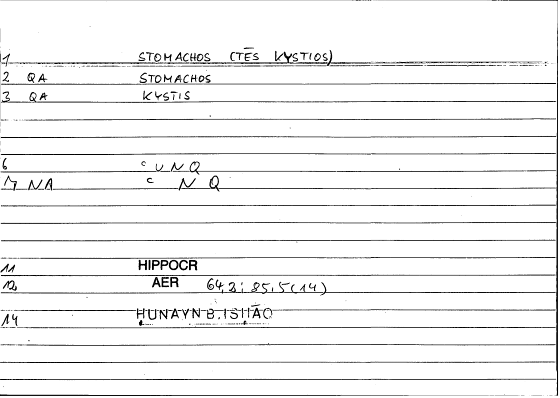 1 STOMACHOS (TĒS KYSTIOS)
2 QA STOMACHOS
3 QA KYSTIS
6 ᶜ U N Q
7 NA ᶜ N Q
11 HIPPOCR
12 AER 64,2; 85,5(14)
14 ḤUNAYN B. ISḤĀQ